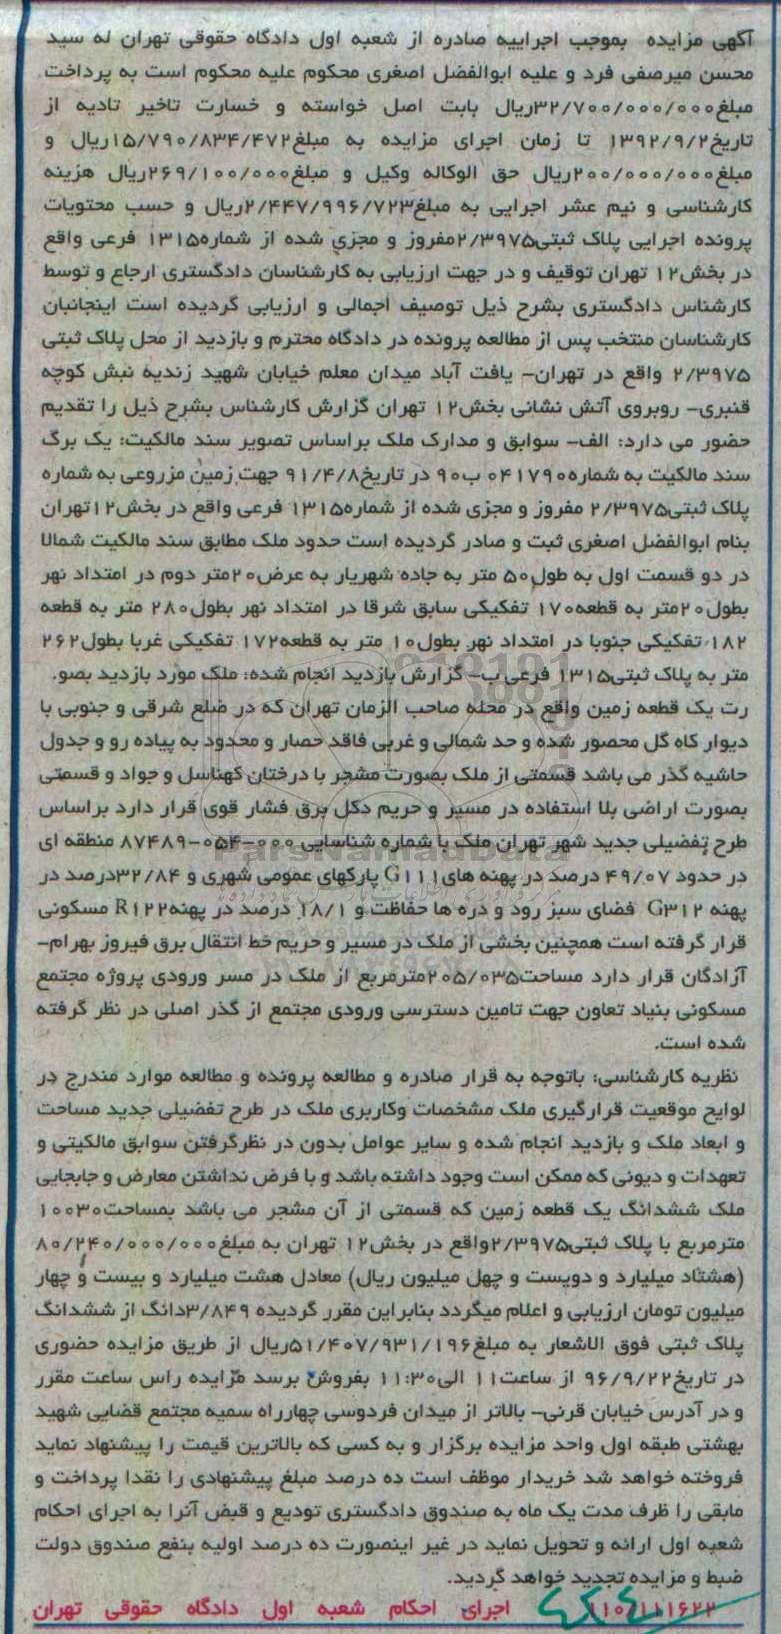 آگهی مزایده بموجب اجراییه صادره از شعبه اول دادگاه حقوقی تهران له سید
محسن میرصفی فرد و علیه ابوالفضل اصغری محکوم علیه محکوم است به پرداخت
مبلغ۳۲/۷۰۰/۰۰۰/۰۰۰ریال بابت اصل خواسته و خسارت تاخیر تادیه از
تاریخ۱۳۹۲/۹/۲ تا زمان اجرای مزایده به مبلغ۱۵/۷۹۰/۸۳۴/۴۷۲ریال و
مبلغ۲۰۰/۰۰۰/۰۰۰ریال حق الوکاله وکیل و مبلغ۲۶۹/۱۰۰/۰۰۰ریال هزینه
کارشناسی و نیم عشر اجرایی به مبلغ۲/۴۴۷/۹۹۶/۷۲۳ریال و حسب محتویات
پرونده اجرایی پلاک ثبتی۲/۳۹۷۵مفروز و مجزی شده از شماره۱۳۱۵ فرعی واقع
در بخش۱۲ تهران توقیف و در جهت ارزیابی به کارشناسان دادگستری ارجاع و توسط
کارشناس دادگستری بشرح ذیل توصیف اجمالی و ارزیابی گردیده است اینجانبان
کارشناسان منتخب پس از مطالعه پرونده در دادگاه محترم و بازدید از محل پلاک ثبتی
۲/۳۹۷۵ واقع در تهران- یافت آباد میدان معلم خیابان شهید زندیه نبش کوچه
قنبری- روبروی آتش نشانی بخش۱۲ تهران گزارش کارشناس بشرح ذیل را تقدیم
حضور می دارد: الف- سوابق و مدارک ملک براساس تصویر سند مالکیت: یک برگ
سند مالکیت به شماره۰۴۱۷۹۰ ب۹۰ در تاریخ۹۱/۴/۸ جهت زمین مزروعی به شماره
پلاک ثبتی۲/۳۹۷۵ مفروز و مجزی شده از شماره۱۳۱۵ فرعی واقع در بخش۱۲تهران
بنام ابوالفضل اصغری ثبت و صادر گردیده است حدود ملک مطابق سند مالکیت شمالا
در دو قسمت اول به طول۵۰ متر به جاده شهریار به عرض۲۰متر دوم در امتداد نهر
بطول۲۰متر به قطعه۱۷۰ تفکیکی سابق شرقا در امتداد نهر بطول۲۸۰ متر به قطعه
۱۸۲ تفکیکی جنوبا در امتداد نهر بطول۱۰ متر به قطعه۱۷۲ تفکیکی غربا بطول۲۶۲
متر به پلاک ثبتی۱۳۱۵ فرعی ب- گزارش بازدید انجام شده: ملک مورد بازدید بصو.
رت یک قطعه زمین واقع در محله صاحب الزمان تهران که در ضلع شرقی و جنوبی با
دیوار کاه گل محصور شده و حد شمالی و غربی فاقد حصار و محدود به پیاده رو و جدول
حاشیه گذر می باشد قسمتی از ملک بصورت مشجر با درختان کهنسال و جواد و قسمتی
بصورت اراضی بلا استفاده در مسیر و حریم دکل برق فشار قوی قرار دارد براساس
طرح تفضیلی جدید شهر تهران ملک با شماره شناسایی ۰۰۰-۰۵۴-۸۷۴۸۹ منطقه ای
در حدود ۴۹/۰۷ درصد در پهنه های G۱۱۱ پارکهای عمومی شهری و ۳۲/۸۴درصد در
پهنه G۳۱۲ فضای سبز رود و دره ها حفاظت و ۱۸/۱ درصد در پهنه R۱۲۲ مسکونی
قرار گرفته است همچنین بخشی از ملک در مسیر و حریم خط انتقال برق فیروز بهرام-
آزادگان قرار دارد مساحت۲۰۵/۰۳۵مترمربع از ملک در مسر ورودی پروژه مجتمع
مسکونی بنیاد تعاون جهت تامین دسترسی ورودی مجتمع از گذر اصلی در نظر گرفته
شده است.
نظریه کارشناسی: باتوجه به قرار صادره و مطالعه پرونده و مطالعه موارد مندرج در
لوایح موقعیت قرارگیری ملک مشخصات وکاربری ملک در طرح تفضیلی جدید مساحت
و ابعاد ملک و بازدید انجام شده و سایر عوامل بدون در نظرگرفتن سوابق مالکیتی و
تعهدات و دیونی که ممکن است وجود داشته باشد و با فرض نداشتن معارض و جابجایی
ملک ششدانگ یک قطعه زمین که قسمتی از آن مشجر می باشد بمساحت۱۰۰۳۰
مترمربع با پلاک ثبتی۲/۳۹۷۵واقع در بخش۱۲ تهران به مبلغ۸۰/۲۴۰/۰۰۰/۰۰۰
(هشتاد میلیارد و دویست و چهل میلیون ریال) معادل هشت میلیارد و بیست و چهار
میلیون تومان ارزیابی و اعلام میگردد بنابراین مقرر گردیده ۳/۸۴۹دانگ از ششدانگ
پلاک ثبتی فوق الاشعار به مبلغ۵۱/۴۰۷/۹۳۱/۱۹۶ریال از طریق مزایده حضوری
در تاریخ۹۶/۹/۲۲ از ساعت۱۱ الی۱۱:۳۰ بفروش برسد مزایده راس ساعت مقرر
و در آدرس خیابان قرنی- بالاتر از میدان فردوسی چهارراه سمیه مجتمع قضایی شهید
بهشتی طبقه اول واحد مزایده برگزار و به کسی که بالاترین قیمت را پیشنهاد نماید
فروخته خواهد شد خریدار موظف است ده درصد مبلغ پیشنهادی را نقدا پرداخت و
مابقی را ظرف مدت یک ماه به صندوق دادگستری تودیع و قبض آنرا به اجرای احکام
شعبه اول ارائه و تحویل نماید در غیر اینصورت ده درصد اولیه بنفع صندوق دولت
ضبط و مزایده تجدید خواهد گردید.
اجرای احکام شعبه اول دادگاه حقوقی تهران
ParsNamadData